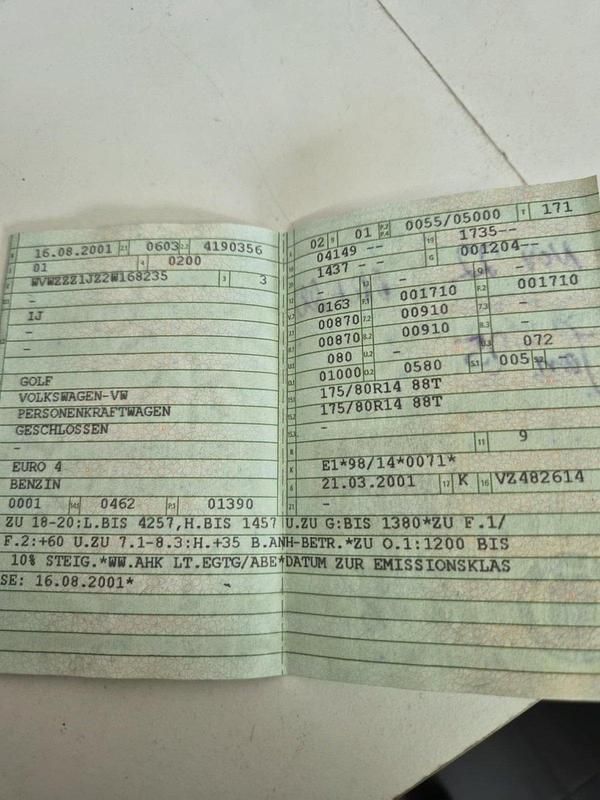 16.08.2001 2.1 0603 2.2 4190356
01 4 0200
WVWZZZ1JZ2W168235 3 3
-
IJ
-
-
GOLF
VOLKSWAGEN-VW
PERSONENKRAFTWAGEN
GESCHLOSSEN
-
EURO 4
BENZIN
0001 14.1 0462 P.1 01390
02 9 01 P.2 P.4 0055/05000 T 171
04149 -- 19 1735--
1437 -- G 001204--
- 13 - Q -
0163 001710 F.2 001710
00870 7.2 00910 7.3 -
00870 8.2 00910 8.3 -
080 U.2 - U.3 072
01000 O.2 0580 S.1 005 S.2 -
175/80R14 88T
175/80R14 88T
-
11 9
K E1*98/14*0071*
6 21.03.2001 17 K 16 VZ482614
21 -
ZU 18-20:L.BIS 4257,H.BIS 1457 U.ZU G:BIS 1380*ZU F.1/
F.2:+60 U.ZU 7.1-8.3:H.+35 B.ANH-BETR.*ZU O.1:1200 BIS
10% STEIG.*WW.AHK LT.EGTG/ABE*DATUM ZUR EMISSIONSKLAS
SE: 16.08.2001* -